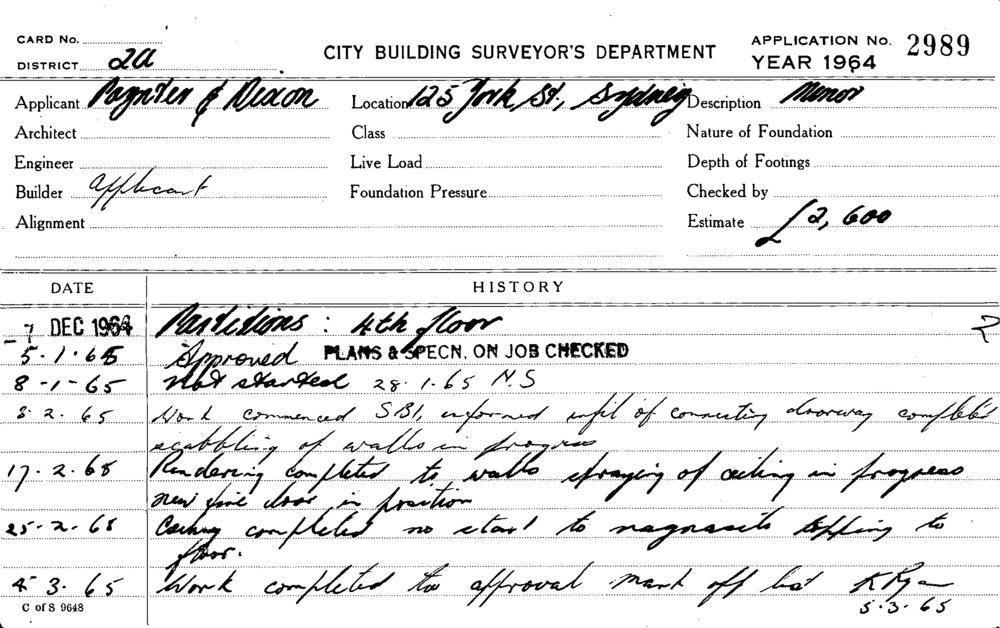 CARD No.
DISTRICT 2A
CITY BUILDING SURVEYOR'S DEPARTMENT
APPLICATION No. 2989
YEAR 1964
Applicant Paynter & Dixon Location 125 York St., Sydney Description Minor
Architect Class Nature of Foundation
Engineer Live Load Depth of Footings
Builder Applicant Foundation Pressure Checked by
Alignment Estimate £2,600
DATE HISTORY
-7 DEC 1964 Partitions : 4th floor 2
5.1.65 Approved PLANS & SPECN. ON JOB CHECKED
8-1-65 Not started 28.1.65 N.S
8.2.65 Work commenced S.B.I. informed infil of connecting doorway completed
scabbling of walls in progress
17.2.65 Rendering completed to walls spraying of ceiling in progress
new fire door in position
25.2.65 completed no start to topping to
floor.
4.3.65 Work completed to approval mark off list K Ryan
C of S 9648 5.3.65